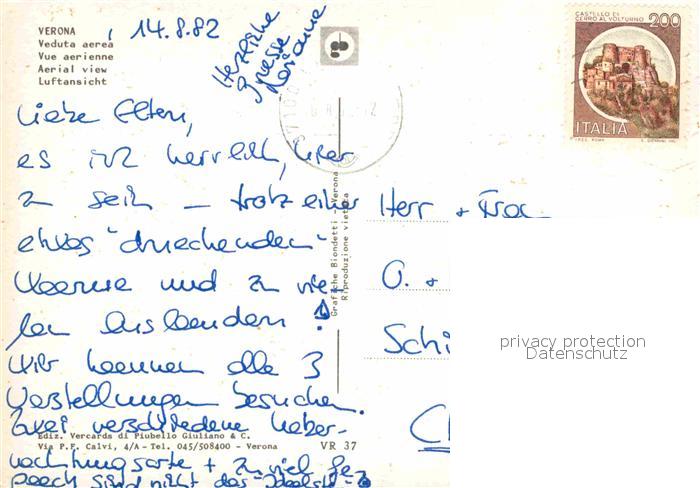 VERONA
Veduta aerea
Vue aerienne
Aerial view
Luftansicht
14.8.82
Herzliche
Grüsse
Marianne
CASTELLO DI
CERRO AL VOLTURNO 200
ITALIA
Liebe Eltern,
es ist herrlich, hier
zu sein – trotz einer
etwas "drückenden"
Wärme und zu vie-
len Ausländern!
Wir können alle 3
Vorstellungen besuchen.
Zwei verschiedene Ueber-
nachtungsorte + zu viel Ge-
päck sind nicht das Idealste
Herr + Frau
O. +
Schi
Grafiche Biondetti - Verona
Riproduzione vietata
Ediz. Vercards di Piubello Giuliano & C.
Via P.F. Calvi, 4/A - Tel. 045/508400 - Verona
VR 37
privacy protection
Datenschutz